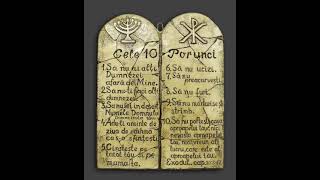 Cele 10 Porunci
1.Să nu ai alți
Dumnezei
afară de Mine.
2.Să nu-ți faci alți
dumnezei.
3.Să nu iei în deșert
Numele Domnului
4.Adu-ți aminte de
ziua de odihnă
ca s-o sfințești
5.Cinstește pe
tatăl tău și pe
mama ta.
6.Să nu ucizi.
7.Să nu
preacurvești.
8.Să nu furi.
9.Să nu mărturisești
strîmb.
10.Să nu poftești casa
aproapelui tău nici
nevasta aproapelui
tău, nici
lucru care este al
aproapelui tău.
Exodul, cap.